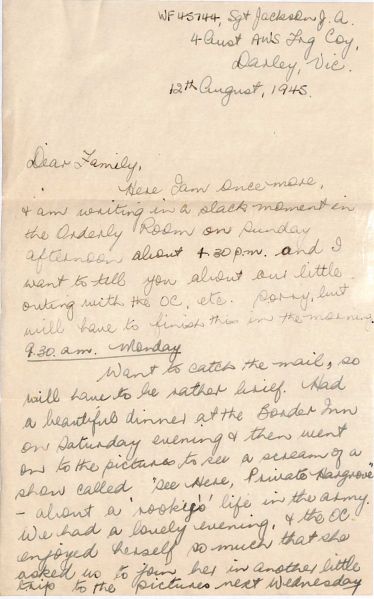 WF45744, Sgt Jackson J. A.
4 Aust AWS Trg Coy,
Darley, Vic.
12th August, 1945.
Dear Family,
Here I am once more,
& am writing in a slack moment in
the Orderly Room on Sunday
afternoon about 4.30 p.m. and I
want to tell you about our little
outing with the OC, etc. Sorry, but
will have to finish this in the morning
9.30. a.m. Monday
Want to catch the mail, so
will have to be rather brief. Had
a beautiful dinner at the Border Inn
on Saturday evening & then went
on to the pictures to see a scream of a
show called "See Here, Private Hargrove"
- about a 'rookie's' life in the army.
We had a lovely evening, & the OC
enjoyed herself so much that she
asked us to join her in another little
trip to the pictures next Wednesday